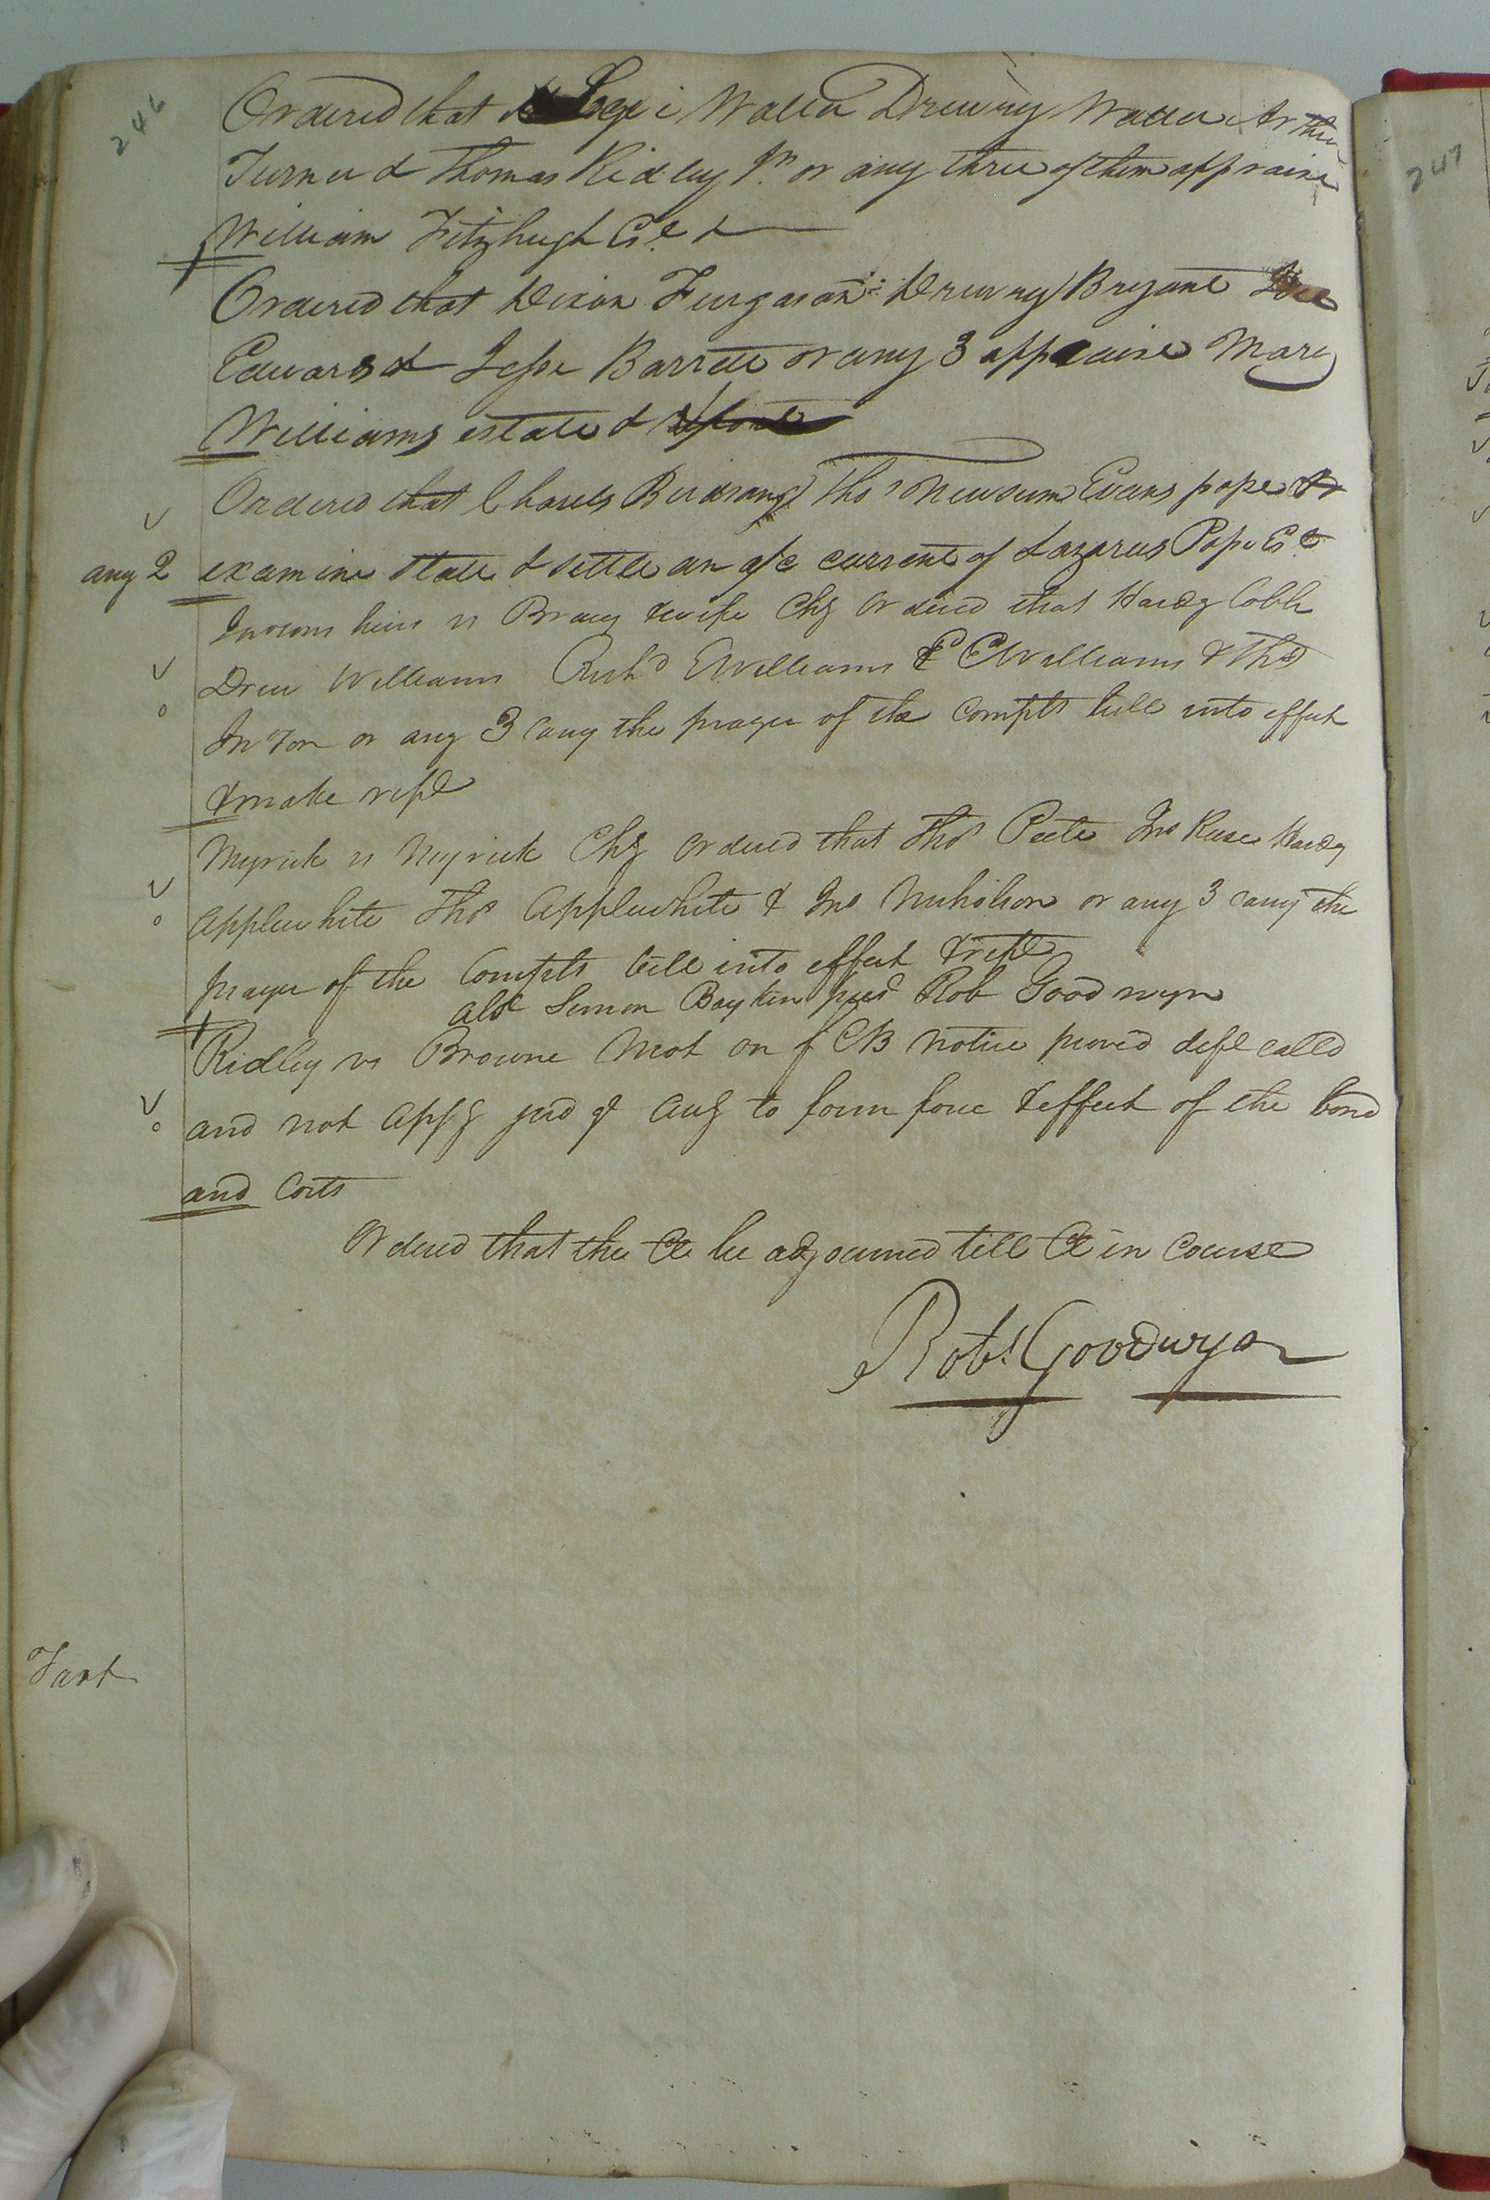 246
Ordered that Levi Waller Drewry Waller Arthur
Turner & Thomas Ridley Jr. or any three of them appraise
William Fitzhugh Est &
Ordered that Dixon Furgason Drewry Bryant
Edwards & Jesse Barrett or any 3 appraise Mary
Williams estate &
Ordered that Charels Birdsong Thos Newsum Evans pope or
any 2 examine state & settle an a/c current of Lazarus Pope Est
heirs vs Bracy & wife Chy Ordered that Hardy Cobb
Drew Williams Richd Williams & Williams & Thos
or any 3 carry the prayer of the Complts bill into effect
& make rept
Myrick vs Myrick Chy Ordered that Thos Peete Jno Hardy
Applewhite Thos Applewhite & Jno Nicholson or any 3 carry the
prayer of the Complts bill into effect & rept
abst Simon Boykin prest Rob Goodwyn
Ridley vs Browne Mot on f CB notice proved deft called
and not appg jud to form force & effect of the bond
and costs
Ordered that the Ct be adjourned till Ct in Course
Robt Goodwyn
Tart
247